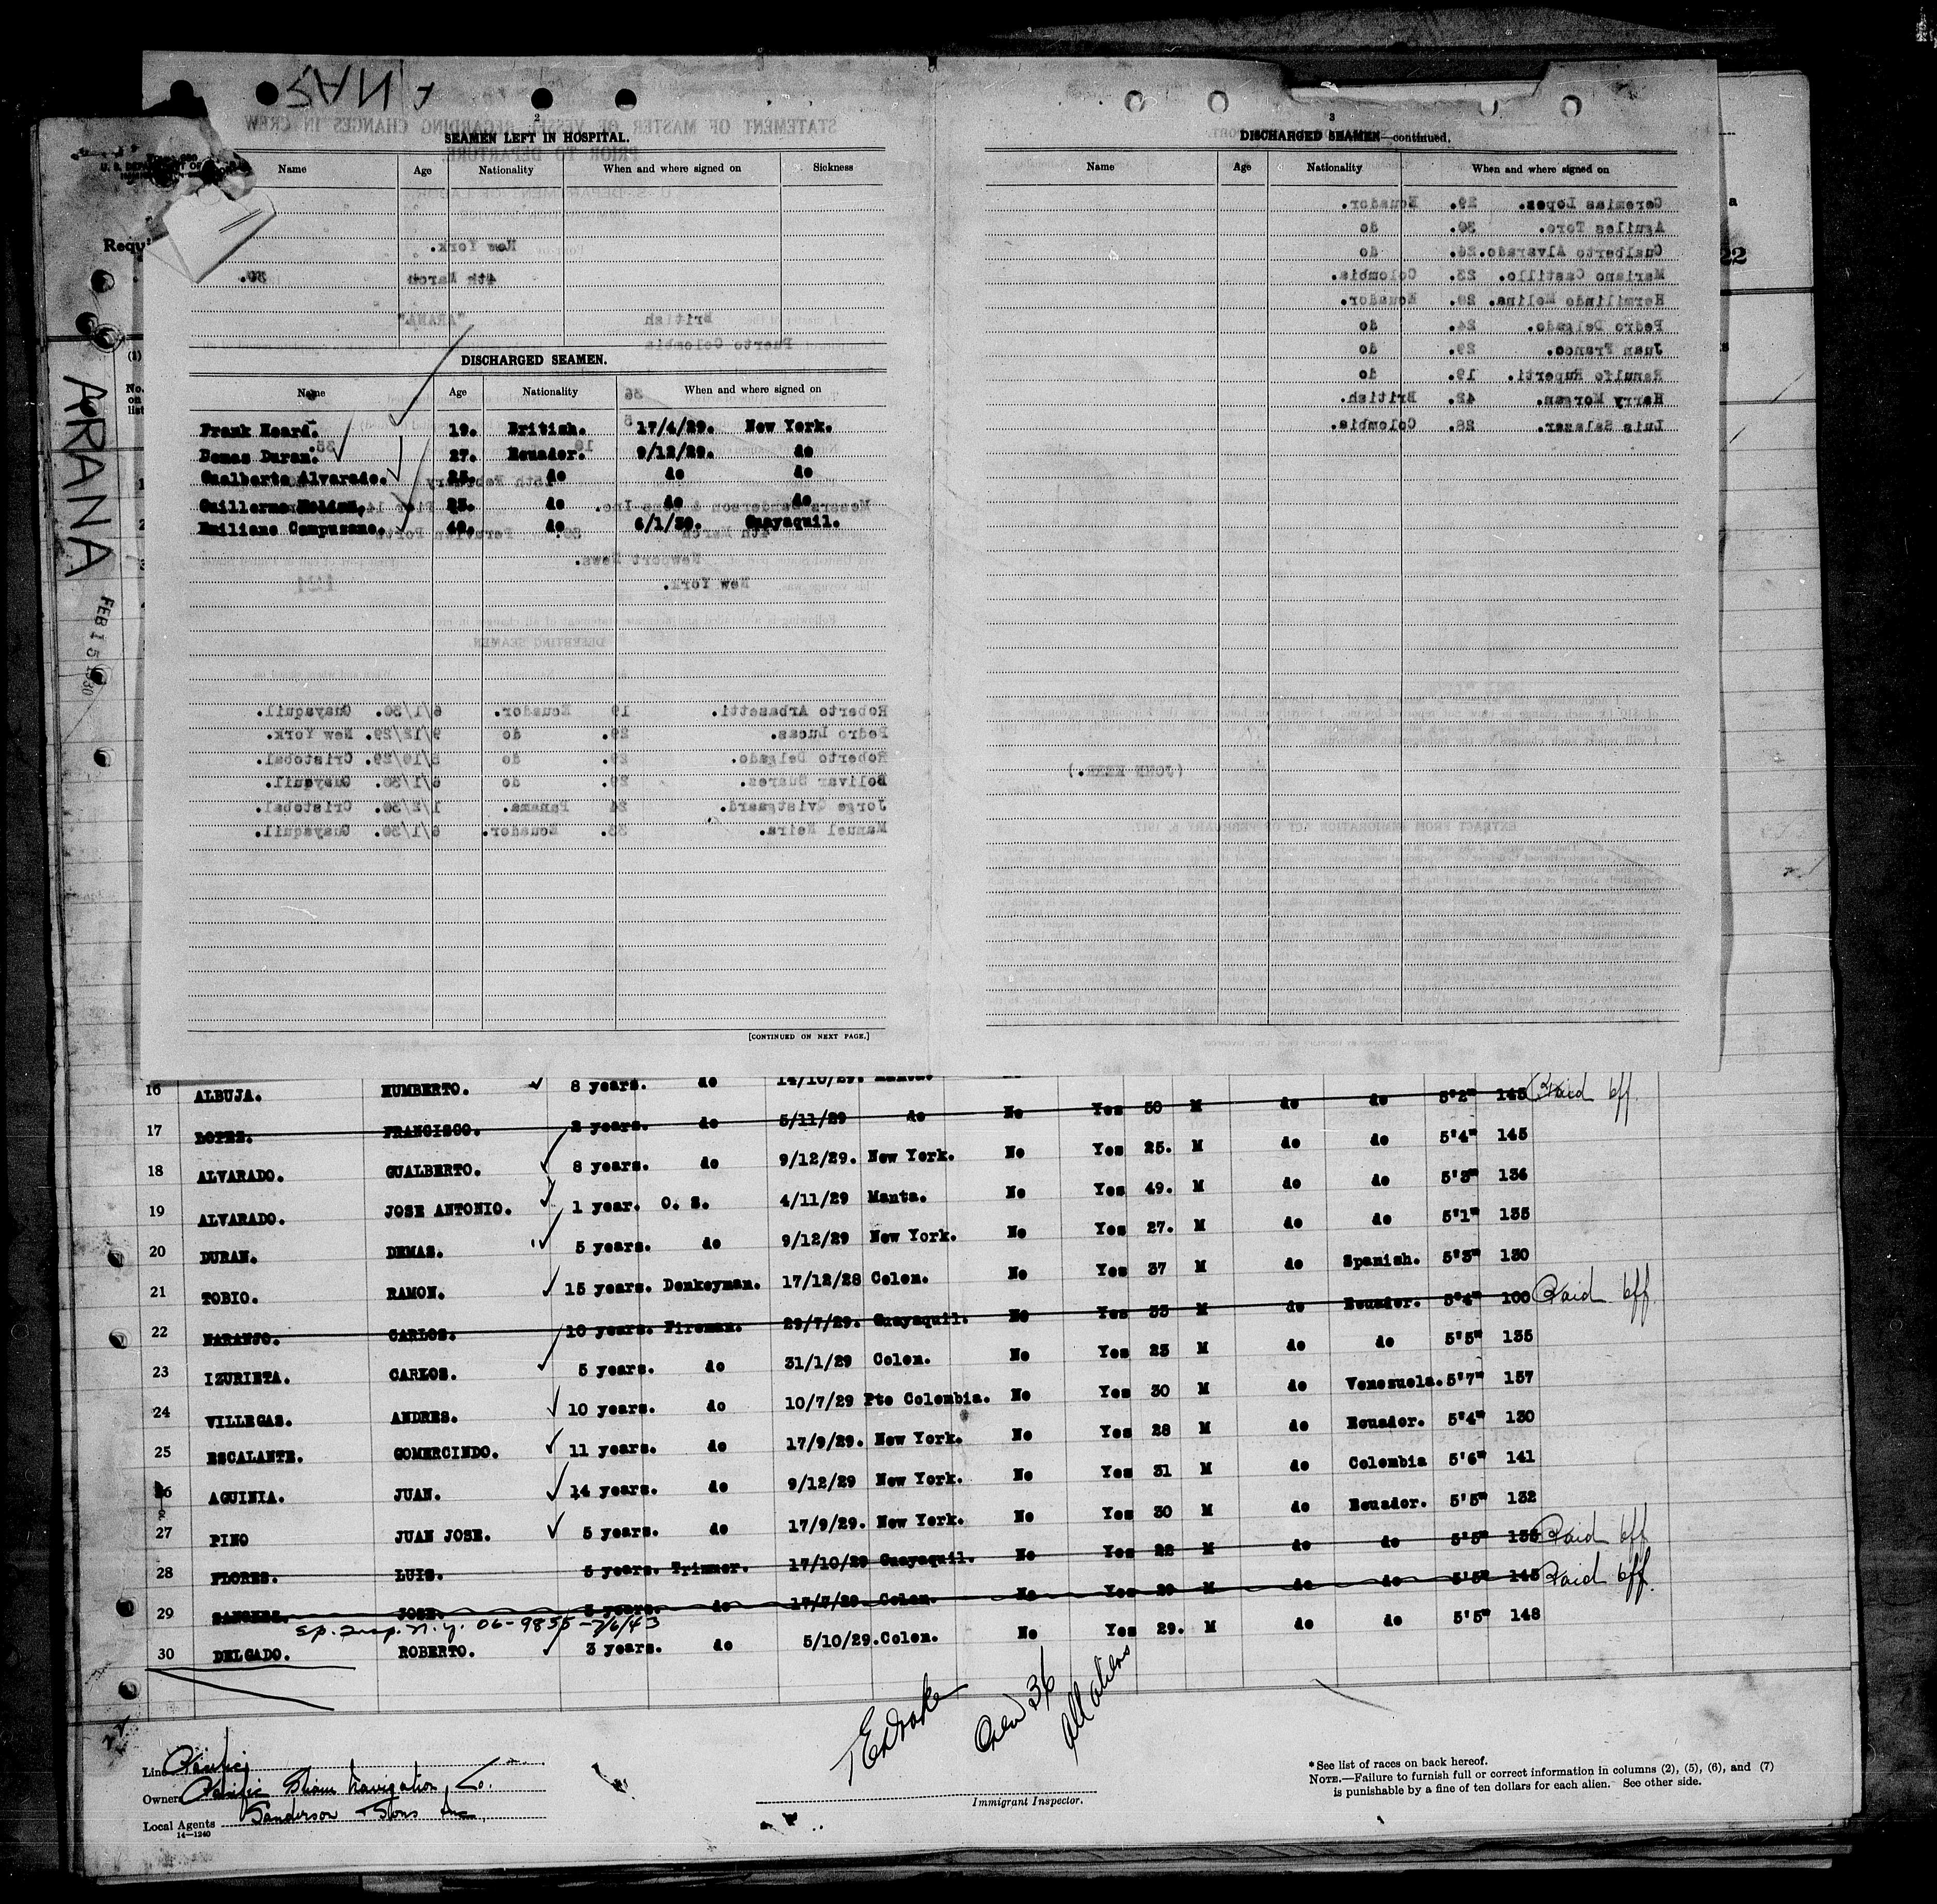 SEAMEN LEFT IN HOSPITAL.
2
Name Age Nationality When and where signed on Sickness
DISCHARGED SEAMEN.
Name Age Nationality When and where signed on
Frank Heard. 19. British. 17/4/29. New York.
Demas Duran. 27. Ecuador. 9/12/29. do
Gualberto Alvarado. 25. do do do
Guillermo 25. do do do
Emiliano Campuzano. 40. do 6/1/30. Guayaquil.
Roberto Arbasetti. 19 Ecuador. 6/1/30. Guayaquil.
Pedro Lucas. 29. do 9/12/29. New York.
Roberto Delgado. 29. do 5/10/29. Cristobal.
Bolivar Suares. 29. do 6/1/30. Guayaquil.
Jorge Qvistgaard. 24 Panama. 1/2/30. Cristobal.
Manuel Neira. 33. Ecuador. 6/1/30. Guayaquil.
[CONTINUED ON NEXT PAGE.]
3
DISCHARGED SEAMEN—continued.
Name Age Nationality When and where signed on
Ceremias Lopez. 29. Ecuador.
Aguiles Toro. 30. do
Gualberto Alvarado. 26. do
Mariano Castillo. 23. Colombia.
Hermilindo Molina. 29. Ecuador.
Pedro Delgado. 24. do
Juan Franco. 29. do
Ranulfo Ruperti. 19. do
Harry Morgan. 42. British.
Luis Salazar. 28. Colombia.
(JOHN KERR.)
EXTRACT FROM IMMIGRATION ACT OF FEBRUARY 5, 1917.
STATEMENT OF MASTER OF VESSEL REGARDING CHANGES IN CREW
PRIOR TO DEPARTURE
New York.
4th March 30.
British "ARANA"
Puerto Colombia
36
Newport News.
New York.
DESERTING SEAMEN
ARANA
FEB 15 1930
16 ALBUJA. HUMBERTO. 8 years. do 14/10/29. Manta.
17 LOPEZ. FRANCISCO. 2 years. do 5/11/29 do No Yes 50 M do do 5'2" 145 Paid off
18 ALVARADO. GUALBERTO. 8 years. do 9/12/29. New York. No Yes 25. M do do 5'4" 145
19 ALVARADO. JOSE ANTONIO. 1 year. O. S. 4/11/29 Manta. No Yes 49. M do do 5'3" 136
20 DURAN. DEMAS. 5 years. do 9/12/29 New York. No Yes 27. M do do 5'1" 135
21 TOBIO. RAMON. 15 years. Donkeyman. 17/12/28 Colon. No Yes 37 M do Spanish. 5'3" 130
22 NARANJO. CARLOS. 10 years. Fireman. 29/7/29. Guayaquil. No Yes 33 M do Ecuador. 5'4" 100 Paid off
23 IZURIETA. CARLOS. 5 years. do 31/1/29 Colon. No Yes 23 M do do 5'5" 135
24 VILLEGAS. ANDRES. 10 years. do 10/7/29 Pto Colombia. No Yes 30 M do Venezuela. 5'7" 157
25 ESCALANTE. GOMERCINDO. 11 years. do 17/9/29. New York. No Yes 28 M do Ecuador. 5'4" 130
26 AGUINIA. JUAN. 14 years. do 9/12/29 New York. No Yes 31 M do Colombia 5'6" 141
27 PINO JUAN JOSE. 5 years. do 17/9/29. New York. No Yes 30 M do Ecuador. 5'5" 132
28 FLORES. LUIS. 5 years. Trimmer. 17/10/29 Guayaquil. No Yes 22 M do do 5'5" 135 Paid off
29 SANCHEZ. JOSE. 3 years. do 17/7/29 Colon. No Yes 29 M do do 5'5" 145 Paid off.
Sp. Insp. N.Y. 06-9855-7/6/43
30 DELGADO. ROBERTO. 3 years. do 5/10/29. Colon. No Yes 29. M do do 5'5" 148
Crew 36
All aliens
Immigrant Inspector.
Line Pacific
Owner Pacific Steam Navigation Co.
Local Agents Sanderson & Sons Inc.,
14—1240
* See list of races on back hereof.
NOTE.—Failure to furnish full or correct information in columns (2), (5), (6), and (7)
is punishable by a fine of ten dollars for each alien. See other side.